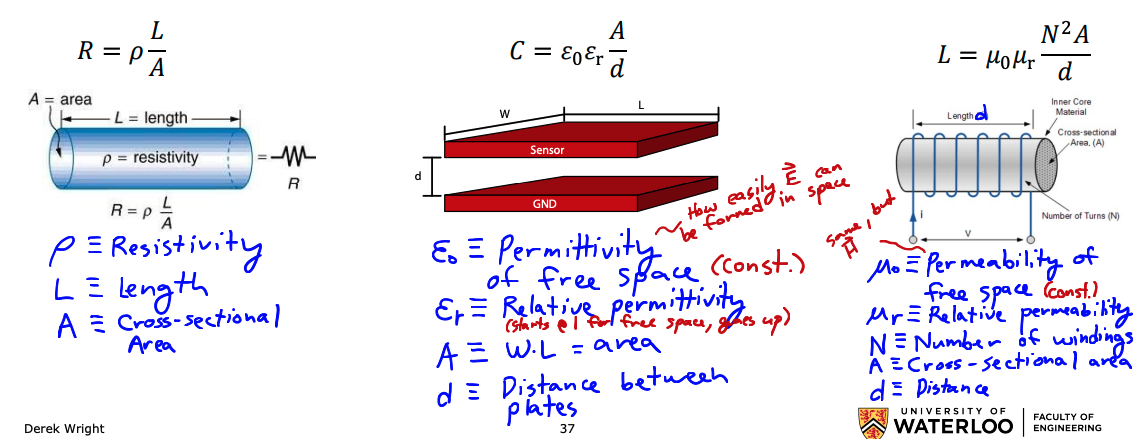 R = ρ L/A
A = area
L = length
ρ = resistivity
= R
R = ρ L/A
ρ ≡ Resistivity
L ≡ Length
A ≡ Cross-sectional
Area
C = ε₀εᵣ A/d
W
L
Sensor
d
GND
How easily E⃗ can
be formed in space
ε₀ ≡ Permittivity
of free space (const.)
εᵣ ≡ Relative permittivity
(starts @ 1 for free space, goes up)
A ≡ W.L = area
d ≡ Distance between
plates
L = μ₀μᵣ N²A/d
Length d
Inner Core
Material
Cross-sectional
Area, (A)
Number of Turns (N)
i
V
same, but
H⃗
μ₀ ≡ Permeability of
free space (const.)
μᵣ ≡ Relative permeability
N ≡ Number of windings
A ≡ Cross-sectional area
d ≡ Distance
Derek Wright
37
UNIVERSITY OF
WATERLOO
FACULTY OF
ENGINEERING